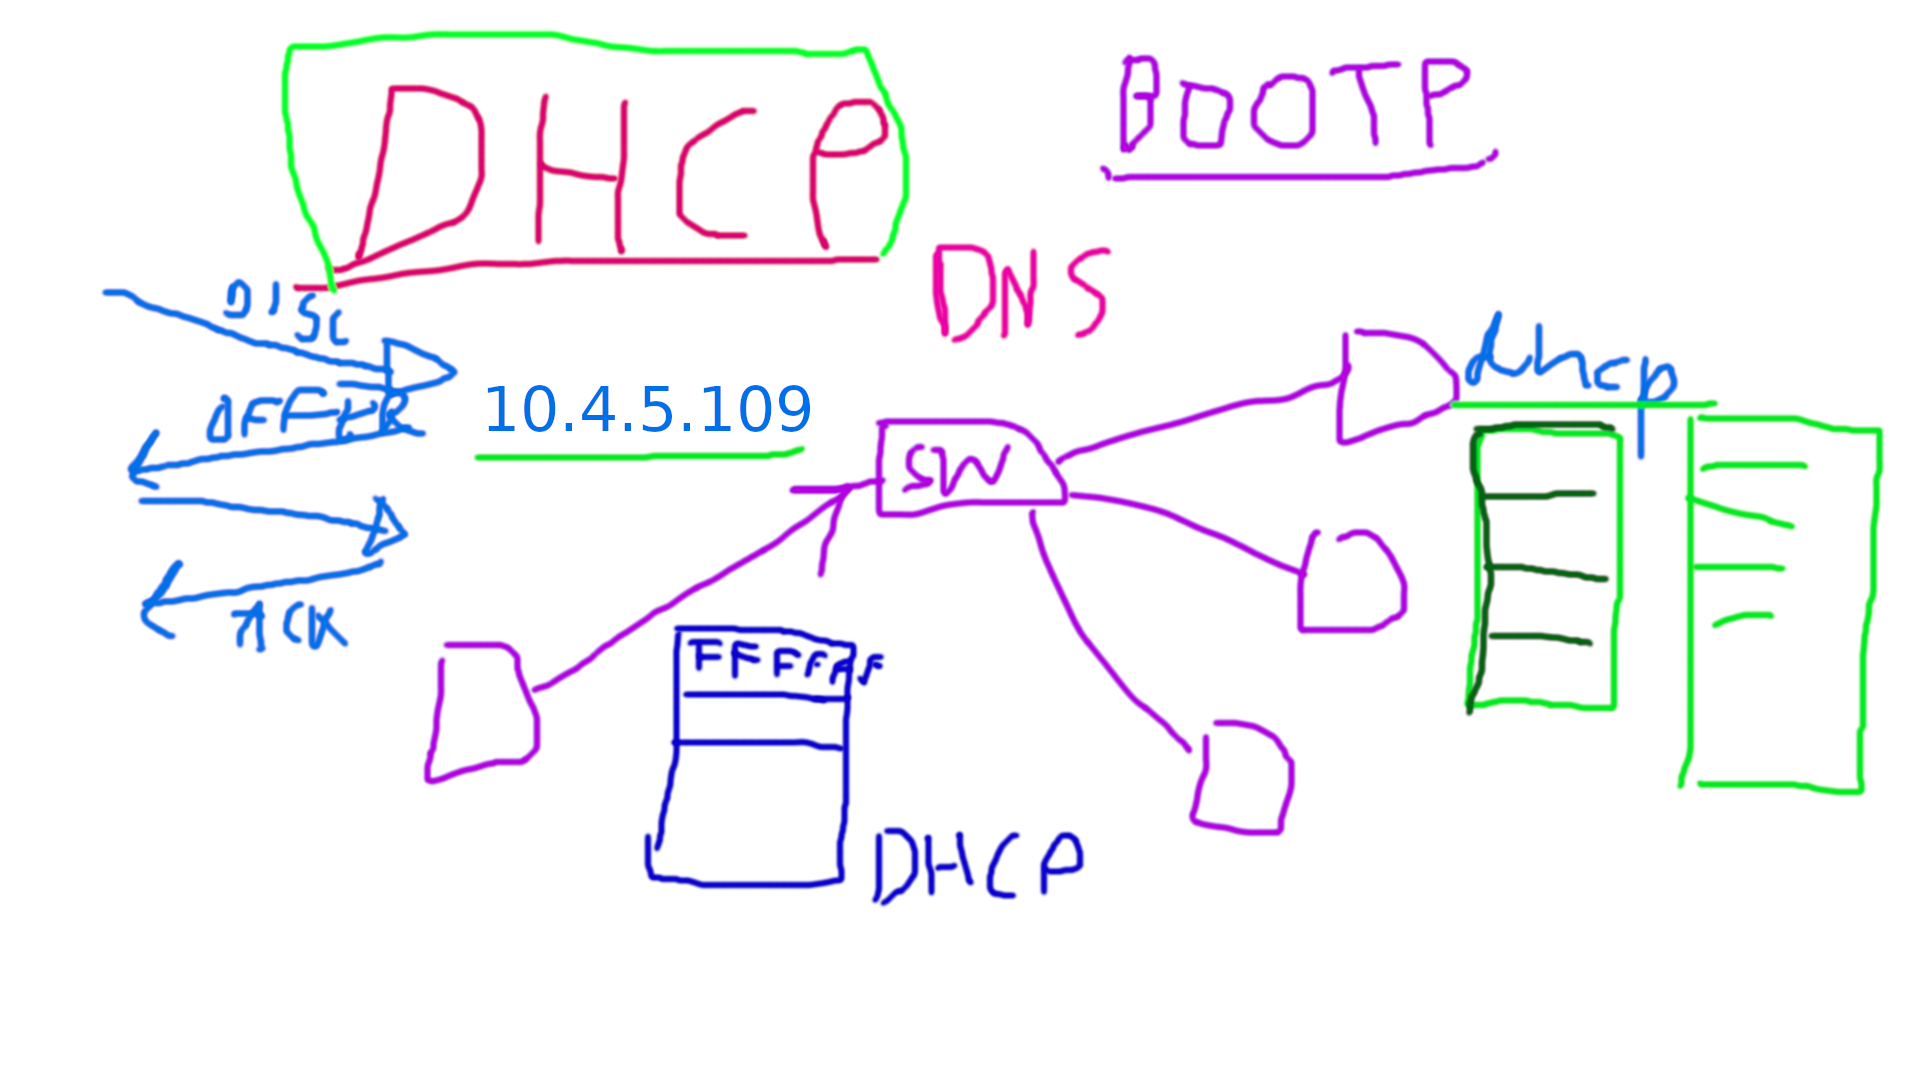 DHCP
BOOTP
DNS
DISC
OFFER
10.4.5.109
ACK
SW
dhcp
FFFFFF
DHCP